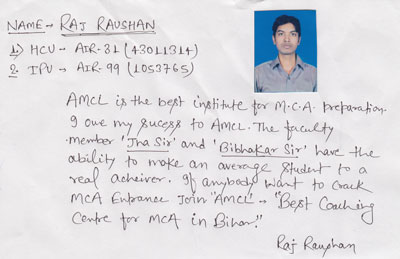 NAME → RAJ RAUSHAN
1.) HCU → AIR-31 (43011314)
2. IPU → AIR-99 (1053765)
AMCL is the best institute for M.C.A. preparation.
I owe my sucess to AMCL. The faculty
member 'Jha Sir' and 'Bibhakar Sir' have the
ability to make an average student to a
real acheiver. If anybody want to crack
MCA Entrance Join "AMCL" → "Best Coaching
Centre for MCA in Bihar."
Raj Raushan